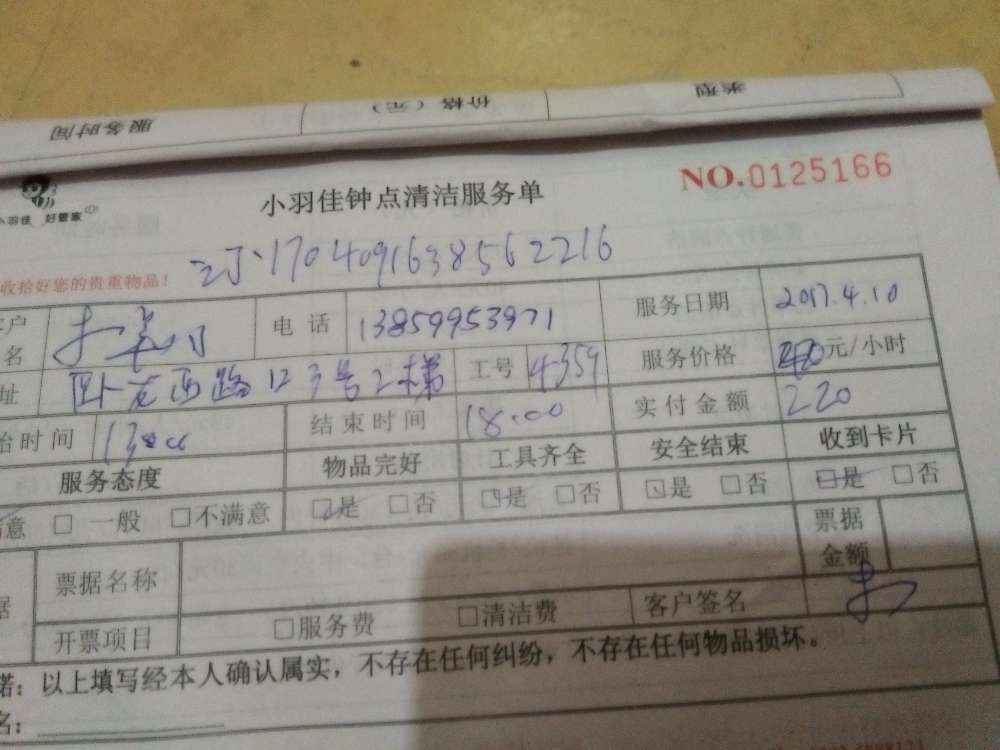 服务时间 价格（元） 类型
小羽佳 好管家
小羽佳钟点清洁服务单 NO.0125166
1704091638562216
收拾好您的贵重物品！
客户 名 电话 13859953971 服务日期 2017.4.10
址 卧龙西路123号2梯 工号 4359 服务价格 元/小时
始时间 13:00 结束时间 18:00 实付金额 220
服务态度 物品完好 工具齐全 安全结束 收到卡片
满意 □ 一般 □不满意 □是 □否 □是 □否 □是 □否 □是 □否
据 票据名称 票据金额
开票项目 □服务费 □清洁费 客户签名
诺：以上填写经本人确认属实，不存在任何纠纷，不存在任何物品损坏。
名：